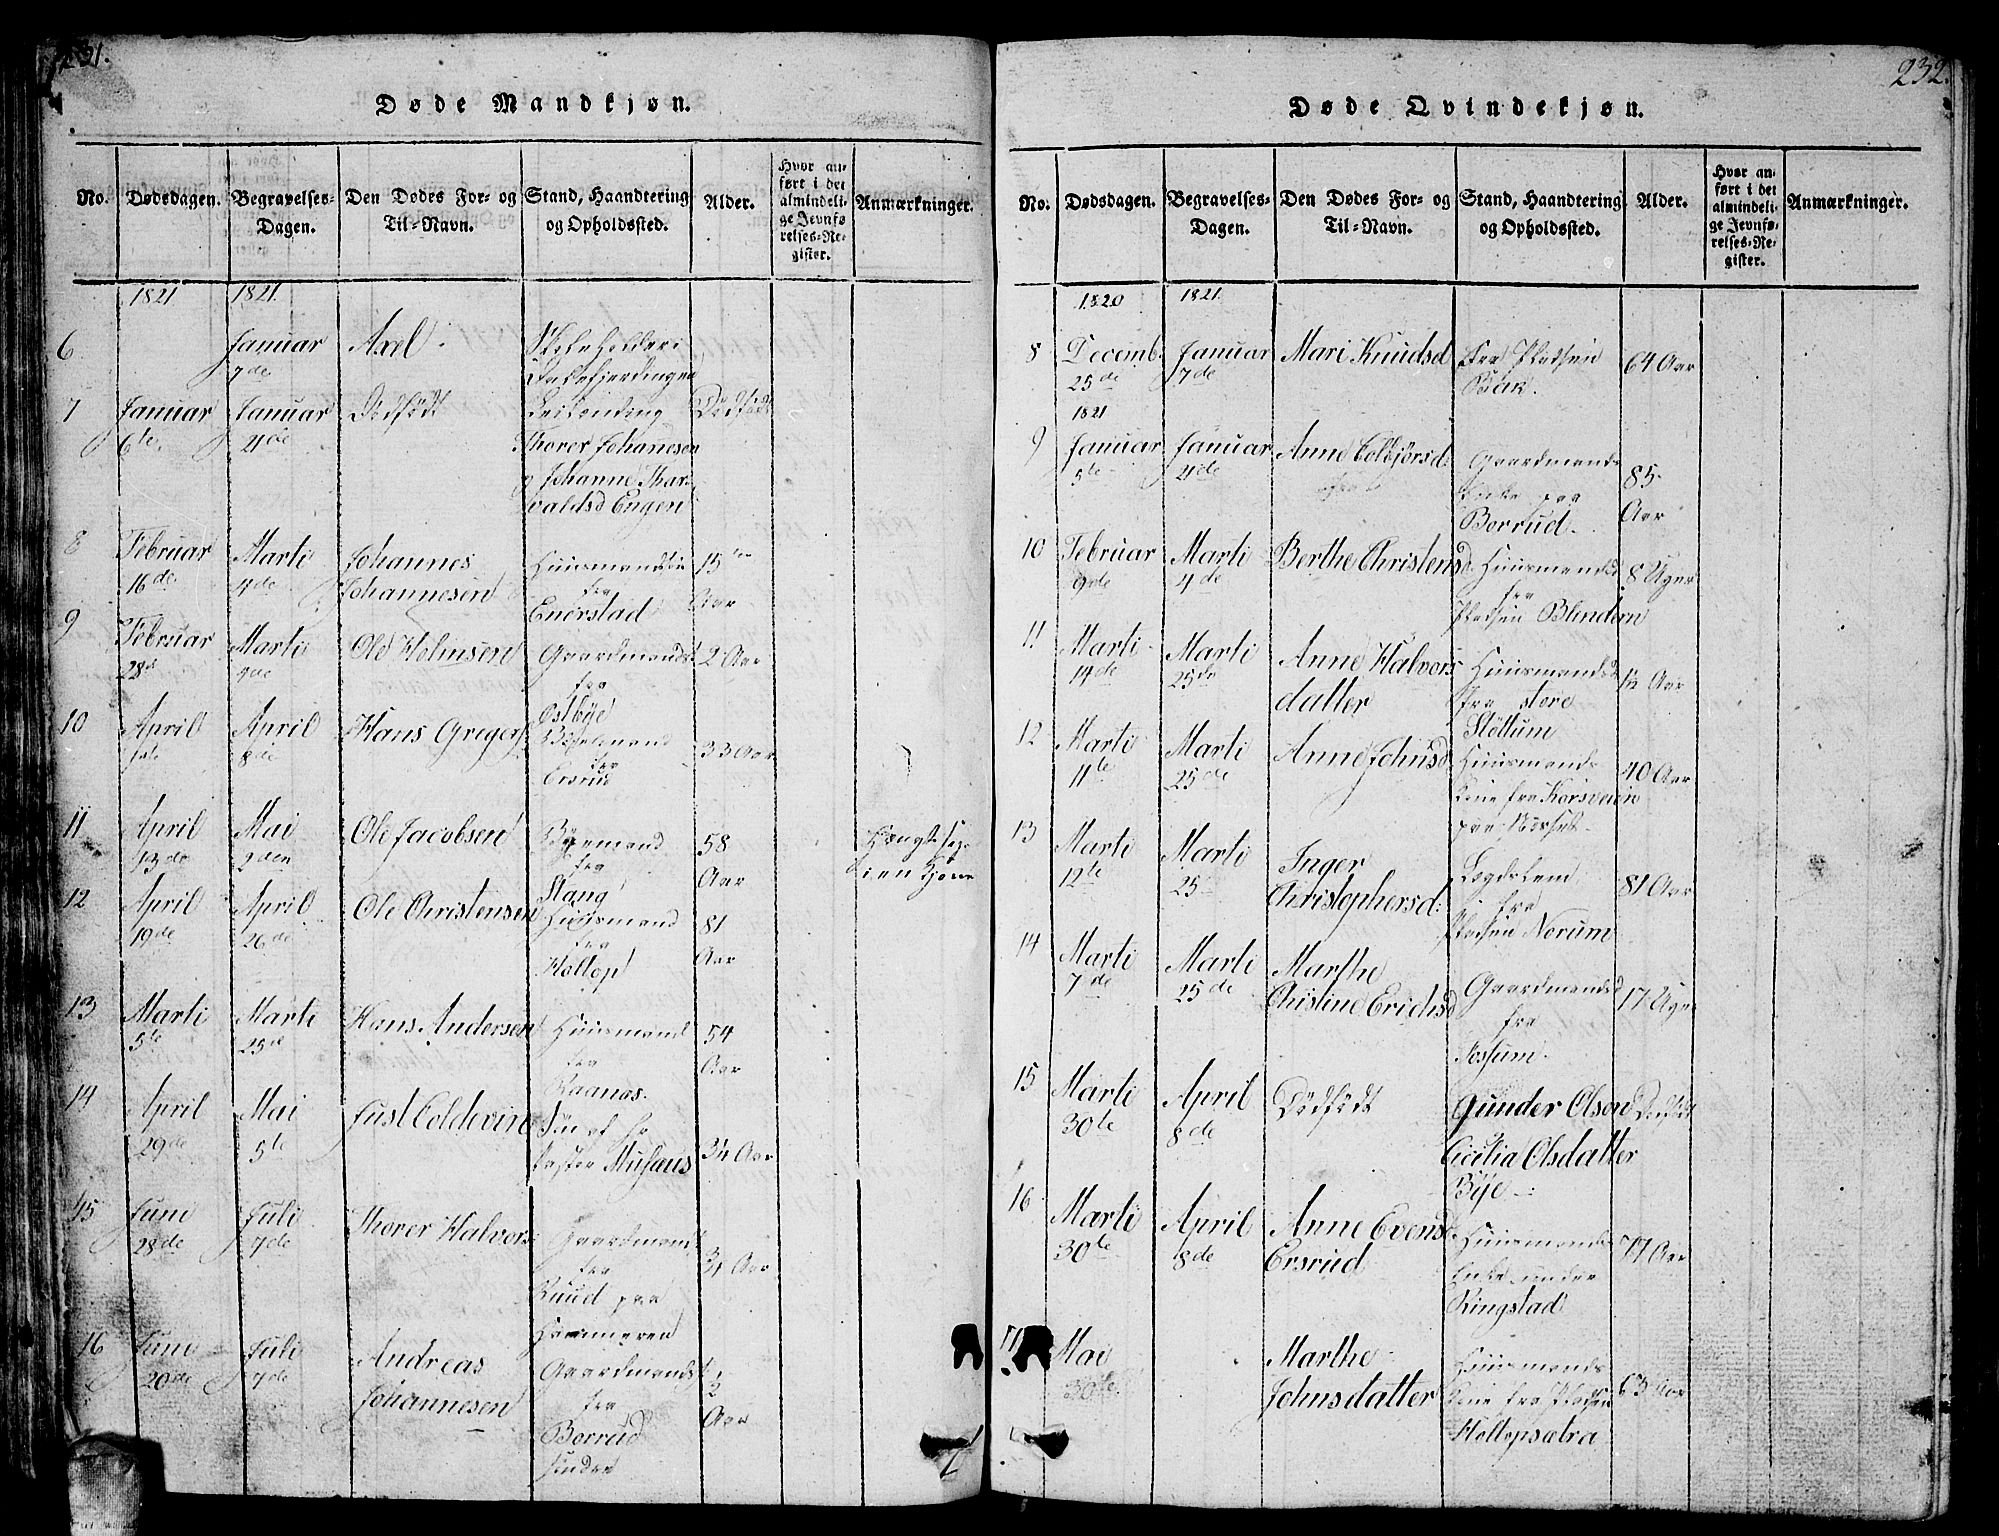 231.
Døde Mandkjøn.
No.
Dødsdagen.
Begravelses-
Dagen.
Den Dødes For- og
Til-Navn.
Stand, Haandtering
og Opholdssted.
Alder.
Hvor an-
ført i det
almindeli-
ge Jevnfø-
relses-Re-
gister.
Anmærkninger.
1821
1821.
6
Januar
7de
Axel
Skoleholder i
7
Januar
6te
Januar
4de
Dødfödt
Dødfödt
Thorer Johannesen
og Johanne Thor-
valdsd Engen
8
Februar
16de
Marti
4de
Johannes
Johannesen
fra
Enerstad
15
Aar
9
Februar
28
Marti
4de
Ole Helmsen
Gaardmands
fra
Østbye
2 Aar
10
April
April
8de
Hans Gregers
fra
Ersrud
33 Aar
11
April
13de
Mai
2den
Ole Jacobsen
fra
Stang
58
Aar
12
April
19de
April
26de
Ole Christensen
Huusmand
fra
Holtop
81
Aar
13
Marti
5te
Marti
25
Hans Andersen
Huusmand
fra
Raanas
54
Aar
14
April
29de
Mai
5te
Just Coldevin
Sön af Hr
Pastor Musæus
3¼ Aar
15
Juni
28de
Juli
7de
Thorer Halvors
Gaardmand
fra
Ruud paa
Hammeren
31 Aar
16
Juni
20de
Juli
7de
Andreas
Johannesen
Gaardmands
fra
Borrud
½
Aar
232.
Døde Qvindekjøn.
No.
Dødsdagen.
Begravelses-
Dagen.
Den Dødes For- og
Til-Navn.
Stand, Haandtering
og Opholdssted.
Alder.
Hvor an-
ført i det
almindeli-
ge Jevnfø-
relses-Re-
gister.
Anmærkninger.
1820
1821.
8
Decemb.
25de
Januar
7de
Mari Knudsd
fra Pladsen
Bak.
64 Aar
1821
9
Januar
5te
Januar
4de
Anne Colbjörsd:
Gaardmands
Enke paa
Borrud
85
Aar
10
Februar
9de
Marti
4de
Berthe Christensd
Huusmandsd
fra
Pladsen Blindern
8 Uger
11
Marti
14de
Marti
25de
Anne Halvors
datter
Huusmandsd
fra store
Slöttum
12 Aar
12
Marti
11te
Marti
25de
Anne Johnsd
Huusmands
Kone fra Korsveien
paa Norset
40 Aar
13
Marti
12te
Marti
25
Inger
Christophersd:
Lægdslem
fra
Pladsen Norum
81 Aar
14
Marti
7de
Marti
25de
Marthe
Christine Erichsd
Gaardmandsd
fra
Fossum
17 Uger
15
Marti
30te
April
8de
Dödfödt
Gunder Olsen
Cicilia Olsdatter
Bÿe
Dödfödt
16
Marti
30te
April
8de
Anne Evensd
Ersrud
Huusmands
Enke under
Ringstad
77 Aar
17
Mai
30te
Marthe
Johnsdatter
Huusmands
Kone fra Pladsen
Holtopsætra
63 Aar